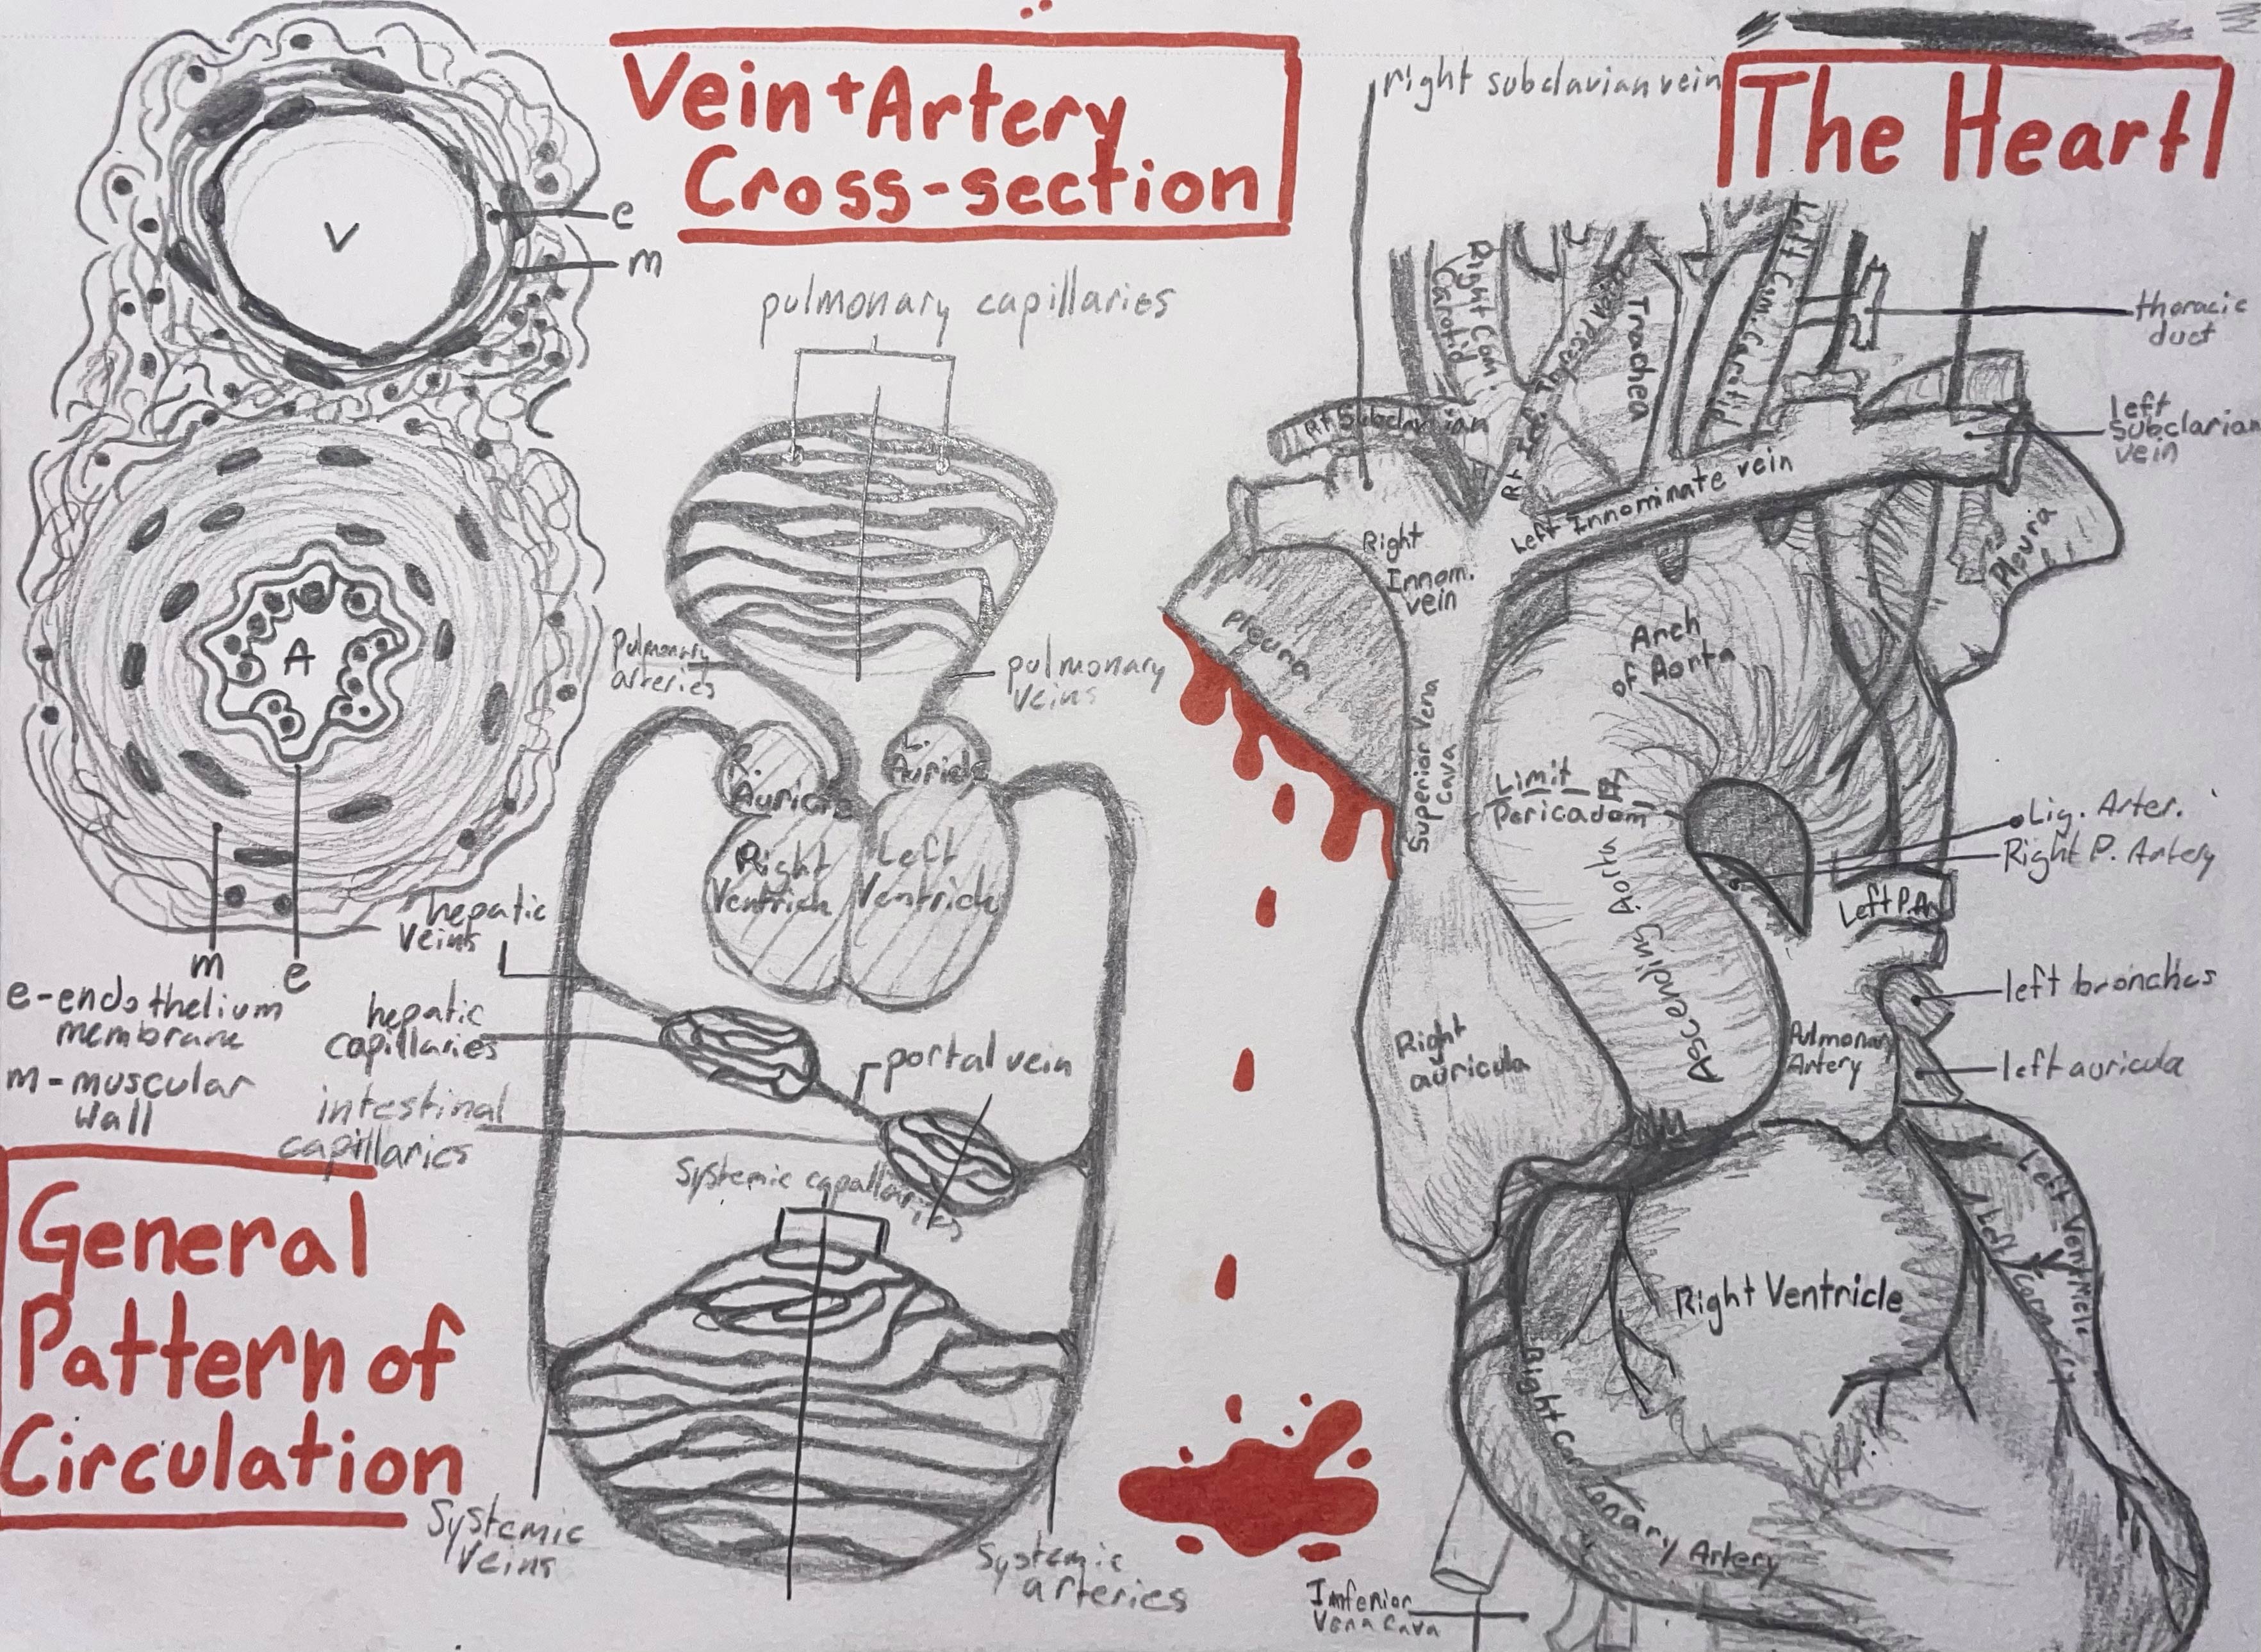 Vein + Artery
Cross-section
V
e
m
A
m
e
e-endothelium
membrane
m-muscular
wall
General
Pattern of
Circulation
pulmonary capillaries
pulmonary
arteries
pulmonary
veins
R.
Auricle
L.
Auricle
Right
Ventricle
Left
Ventricle
hepatic
veins
hepatic
capillaries
portal vein
intestinal
capillaries
Systemic capallaries
Systemic
veins
Systemic
arteries
The Heart
right subclavian vein
Right Com.
Carotid
Trachea
Left Com. Carotid
thoracic
duct
Rt Subclavian
left
subclavian
vein
Left Innominate vein
Right
Innom.
vein
Pleura
Pleura
Arch
of Aorta
Superior Vena
Cava
Limit
Pericadom
Ascending Aorta
Lig. Arter.
Right P. Artery
Left P. Ar
left bronchus
left auricula
Pulmonary
Artery
Right
auricula
Left Ventricle
Left Coronary
Right Ventricle
Right Coronary Artery
Imferior
Vena Cava